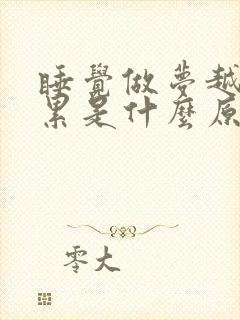 睡覺做夢越
累是什麼原
零大